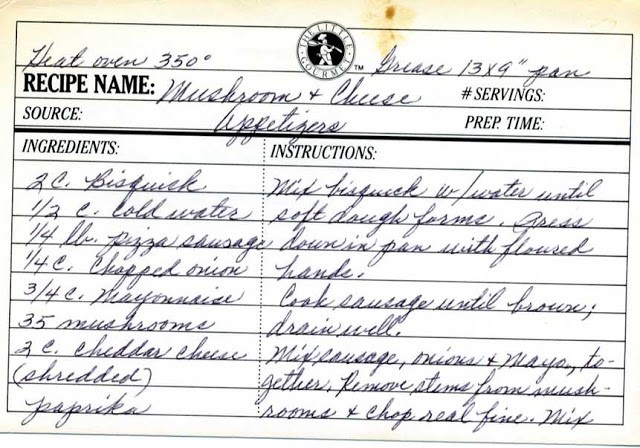 THE LITTLE GOURMET TM
Heat oven 350° Grease 13x9" pan
RECIPE NAME: Mushroom + Cheese # SERVINGS:
SOURCE: Appetizers PREP. TIME:
INGREDIENTS: INSTRUCTIONS:
2 C. Bisquick Mix bisquick w/water until
1/2 c. cold water soft dough forms. Press
1/4 lb. pizza sausage down in pan with floured
1/4 C. Chopped onion hands.
3/4 C. Mayonnaise Cook sausage until brown;
35 mushrooms drain well.
2 C. cheddar cheese Mix sausage, onions + Mayo, to-
(shredded) gether. Remove stems from mush-
paprika rooms + chop real fine. Mix